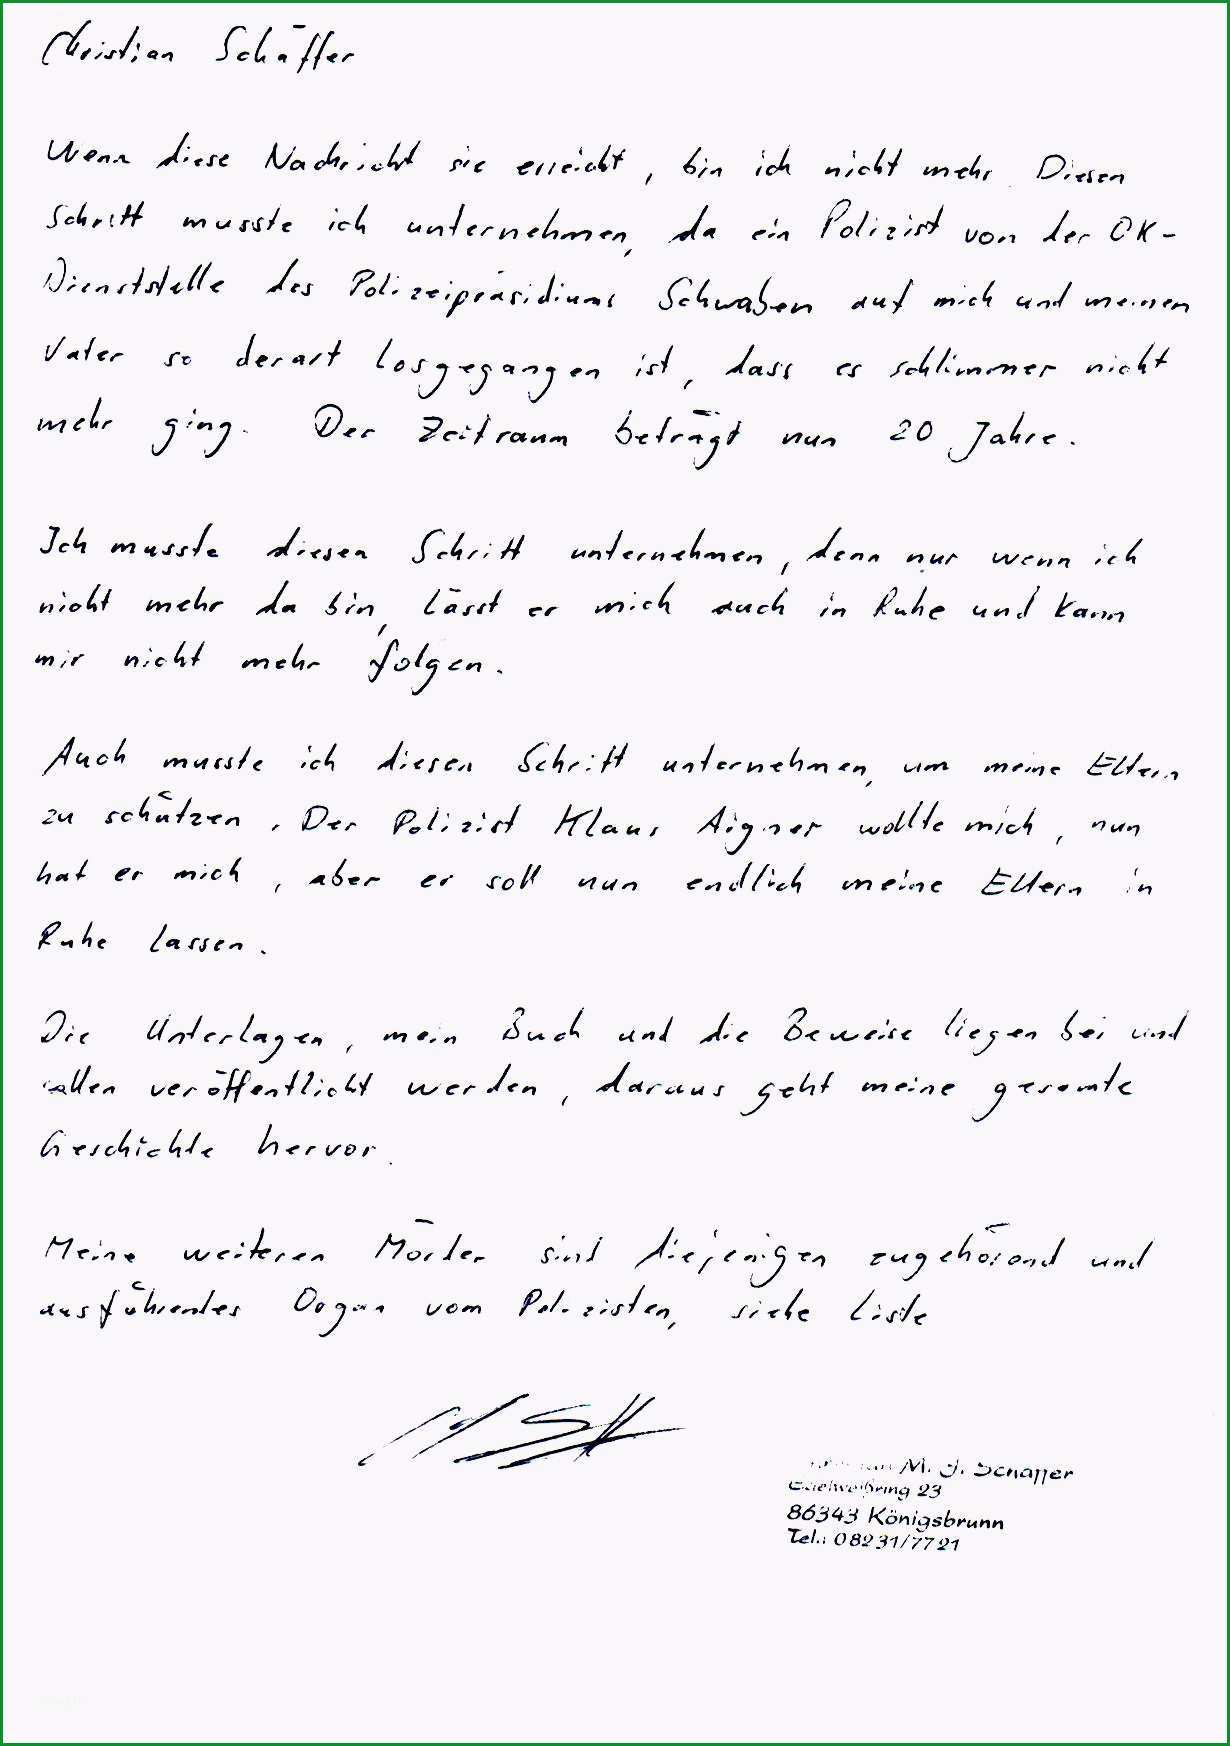 Christian Schäffer
Wenn diese Nachricht sie erreicht, bin ich nicht mehr. Diesen
Schritt musste ich unternehmen, da ein Polizist von der OK-
Dienststelle des Polizeipräsidiums Schwaben auf mich und meinen
Vater so derart losgegangen ist, dass es schlimmer nicht
mehr ging. Der Zeitraum beträgt nun 20 Jahre.
Ich musste diesen Schritt unternehmen, denn nur wenn ich
nicht mehr da bin, lässt er mich auch in Ruhe und kann
mir nicht mehr folgen.
Auch musste ich diesen Schritt unternehmen, um meine Eltern
zu schützen. Der Polizist Klaus Aigner wollte mich, nun
hat er mich, aber er soll nun endlich meine Eltern in
Ruhe lassen.
Die Unterlagen, mein Buch und die Beweise liegen bei und
sollen veröffentlicht werden, daraus geht meine gesamte
Geschichte hervor.
Meine weiteren Mörder sind diejenigen zugehörend und
ausführendes Organ vom Polizisten, siehe Liste
M. J. Schäffer
Edelweißring 23
86343 Königsbrunn
Tel.: 08231/7721